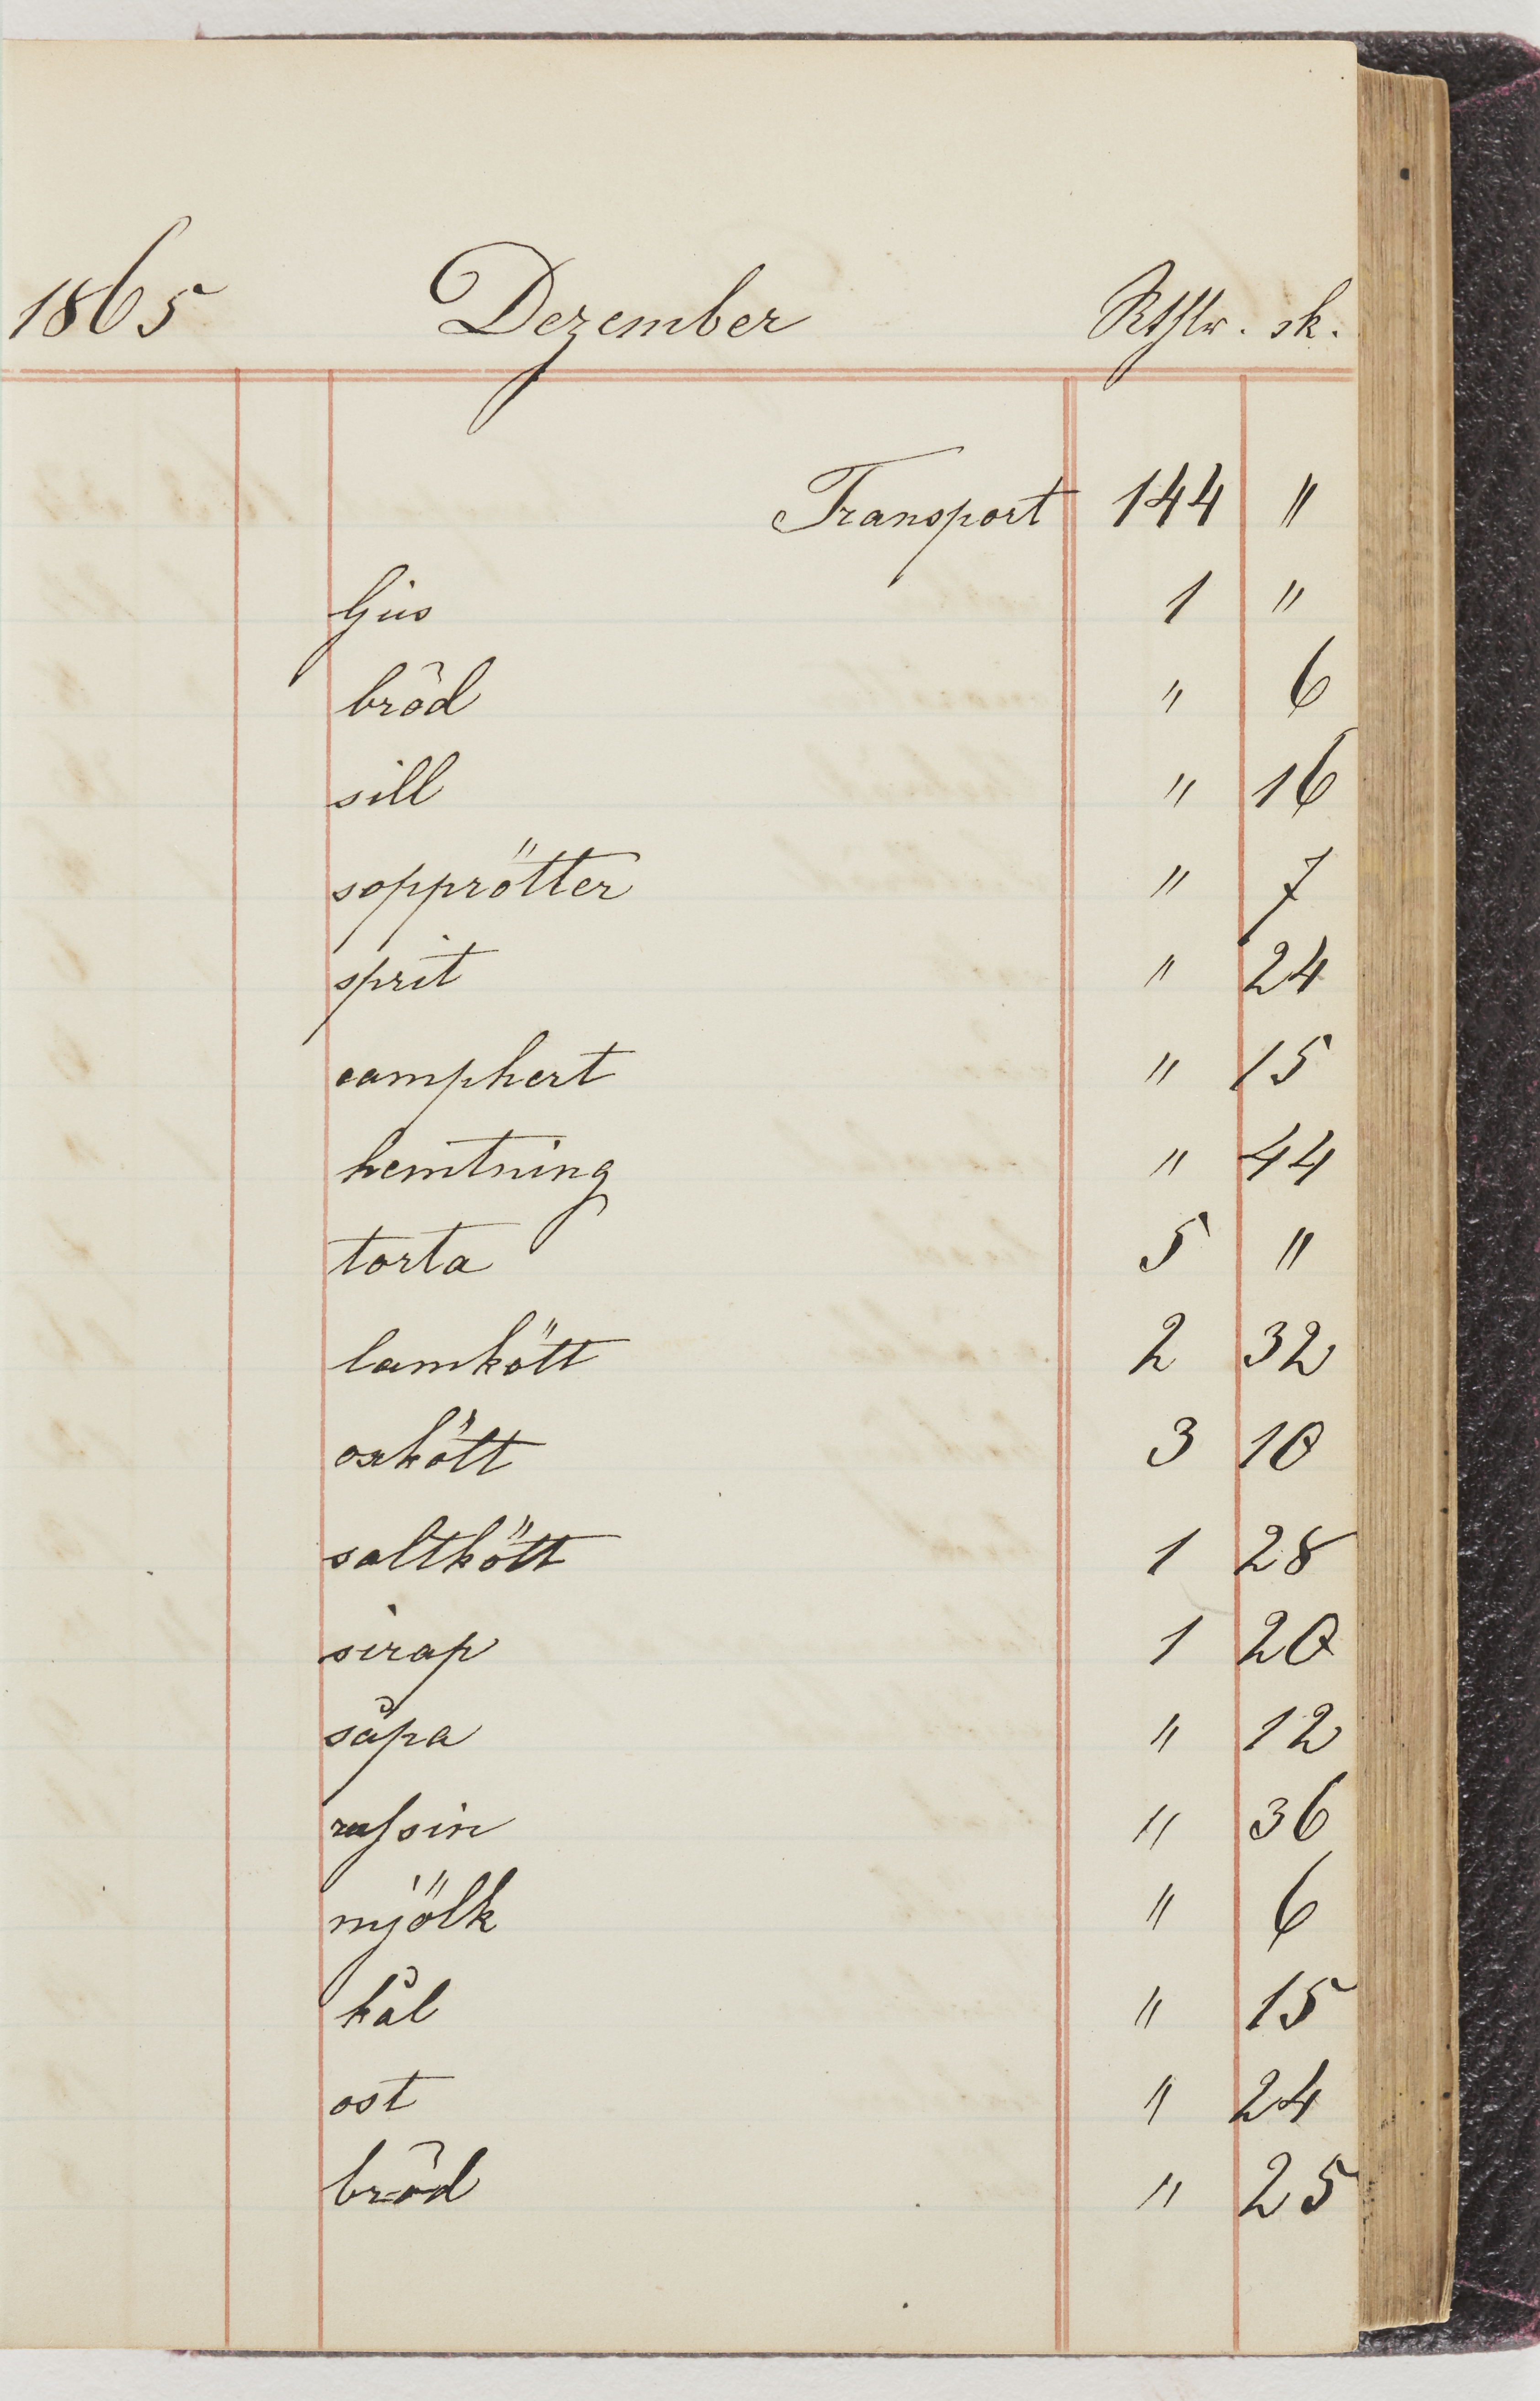 1865 Dezember Rthlr. sk.
Transport 144 "
ljus 1 "
bröd " 6
sill " 16
sopprötter " 7
sprit " 24
camphert " 15
hemtning " 44
torta 5 "
lamkött 2 32
oxkött 3 10
saltkött 1 28
sirap 1 20
såpa " 12
russin " 36
mjölk " 6
kål " 15
ost " 24
bröd " 25